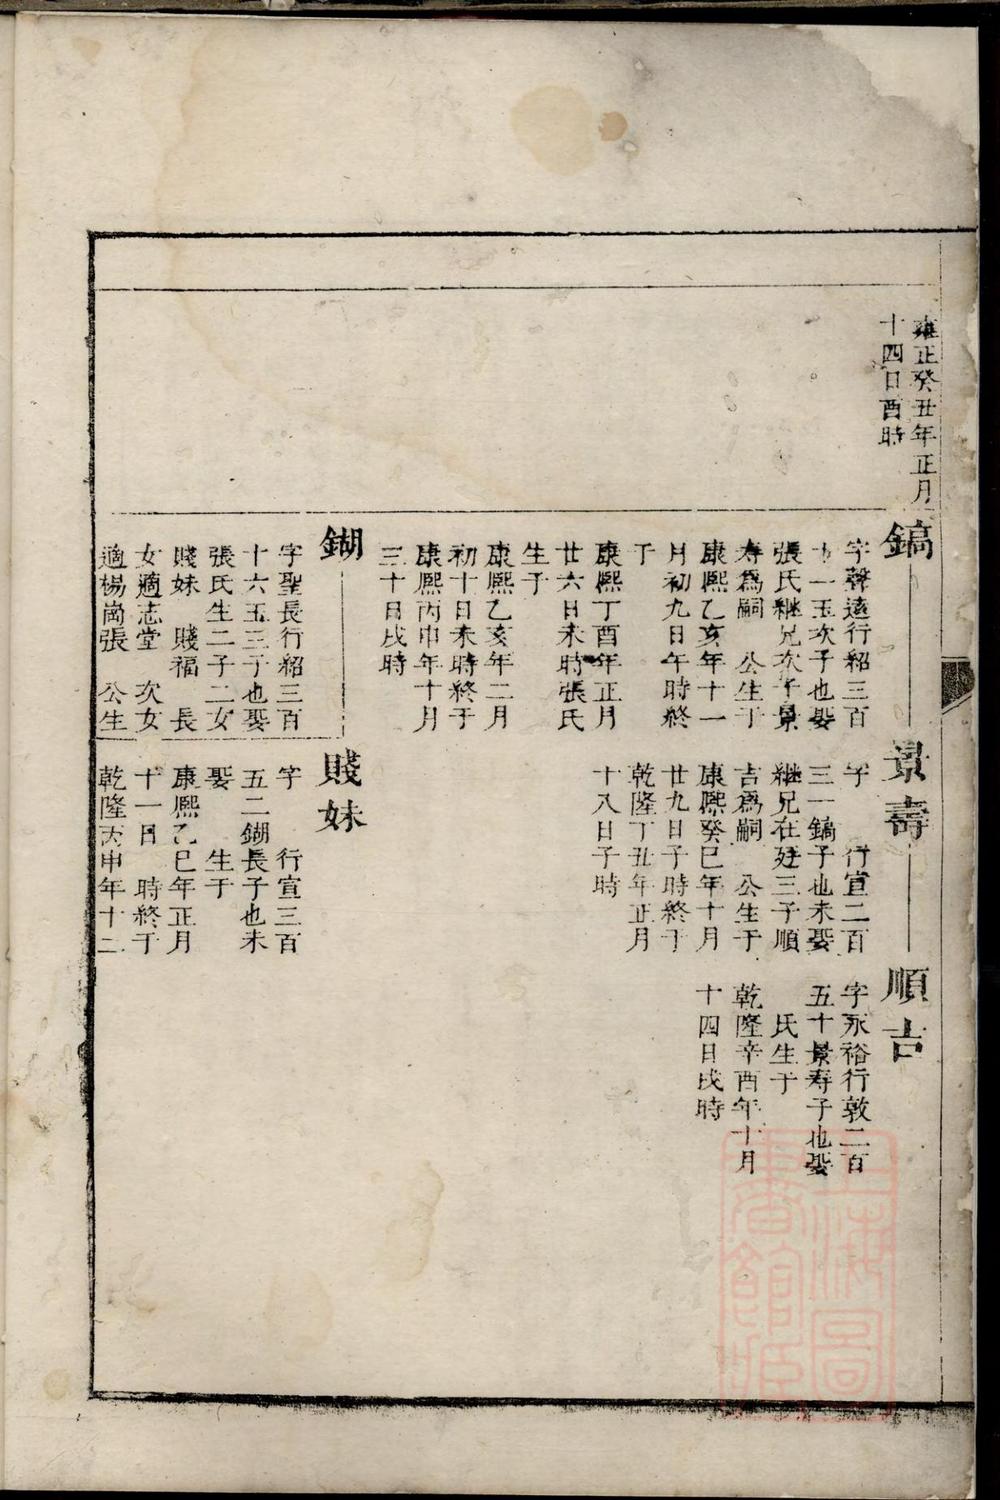 雍正癸丑年正月
十四日酉時
鎬
字聲遠行紹三百
十一玉次子也娶
張氏継兄次子景
寿爲嗣　公生于
康熈乙亥年十一
月初九日午時終
于
康熈丁酉年正月
廿六日未時張氏
生于
康熈乙亥年二月
初十日未時終于
康熈丙申年十月
三十日戌時
景壽
字　　行宣二百
三一鎬子也未娶
継兄在廷三子順
吉爲嗣　公生于
康熈癸巳年十月
廿九日子時終于
乾隆丁丑年正月
十八日子時
順吉
字永裕行敦二百
五十景寿子也娶
　氏生于
乾隆辛酉年十月
十四日戌時
鍸
字聖長行紹三百
十六玉三子也娶
張氏生二子二女
賤妹　賤福　長
女適志堂　次女
適楊崗張　公生
賤妹
字　　行宣三百
五二鍸長子也未
娶　　生于
康熈乙巳年正月
十一日　時終于
乾隆丙申年十二
上海圖書館藏